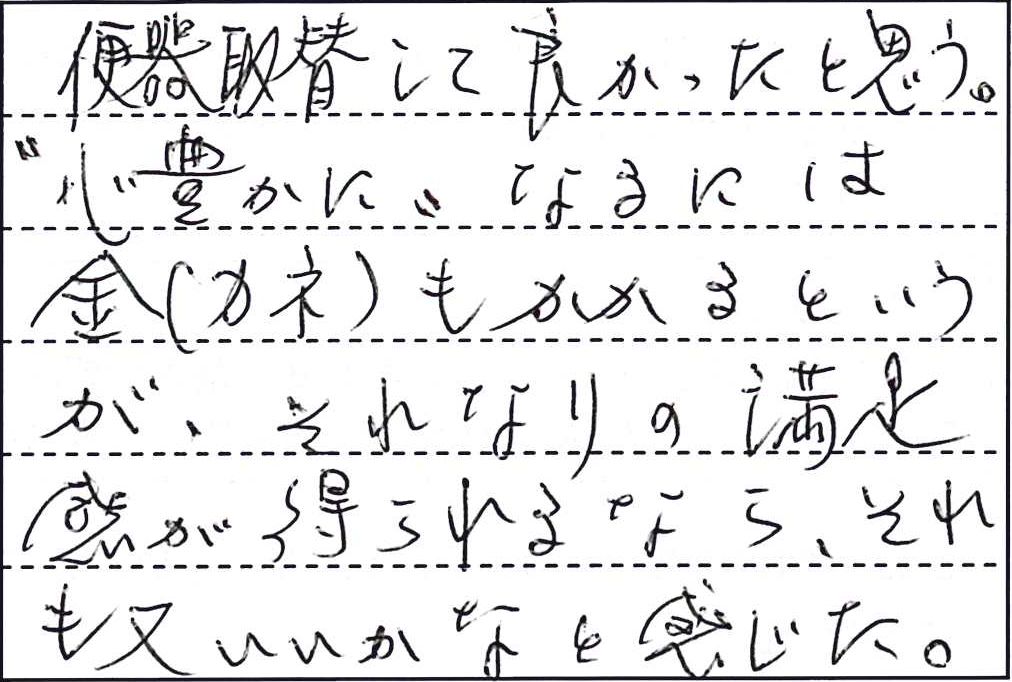 便器取替して良かったと思う。
"心豊かに"なるには
金(カネ)もかかるという
が、それなりの満足
感が得られるなら、それ
も又いいかなと感じた。